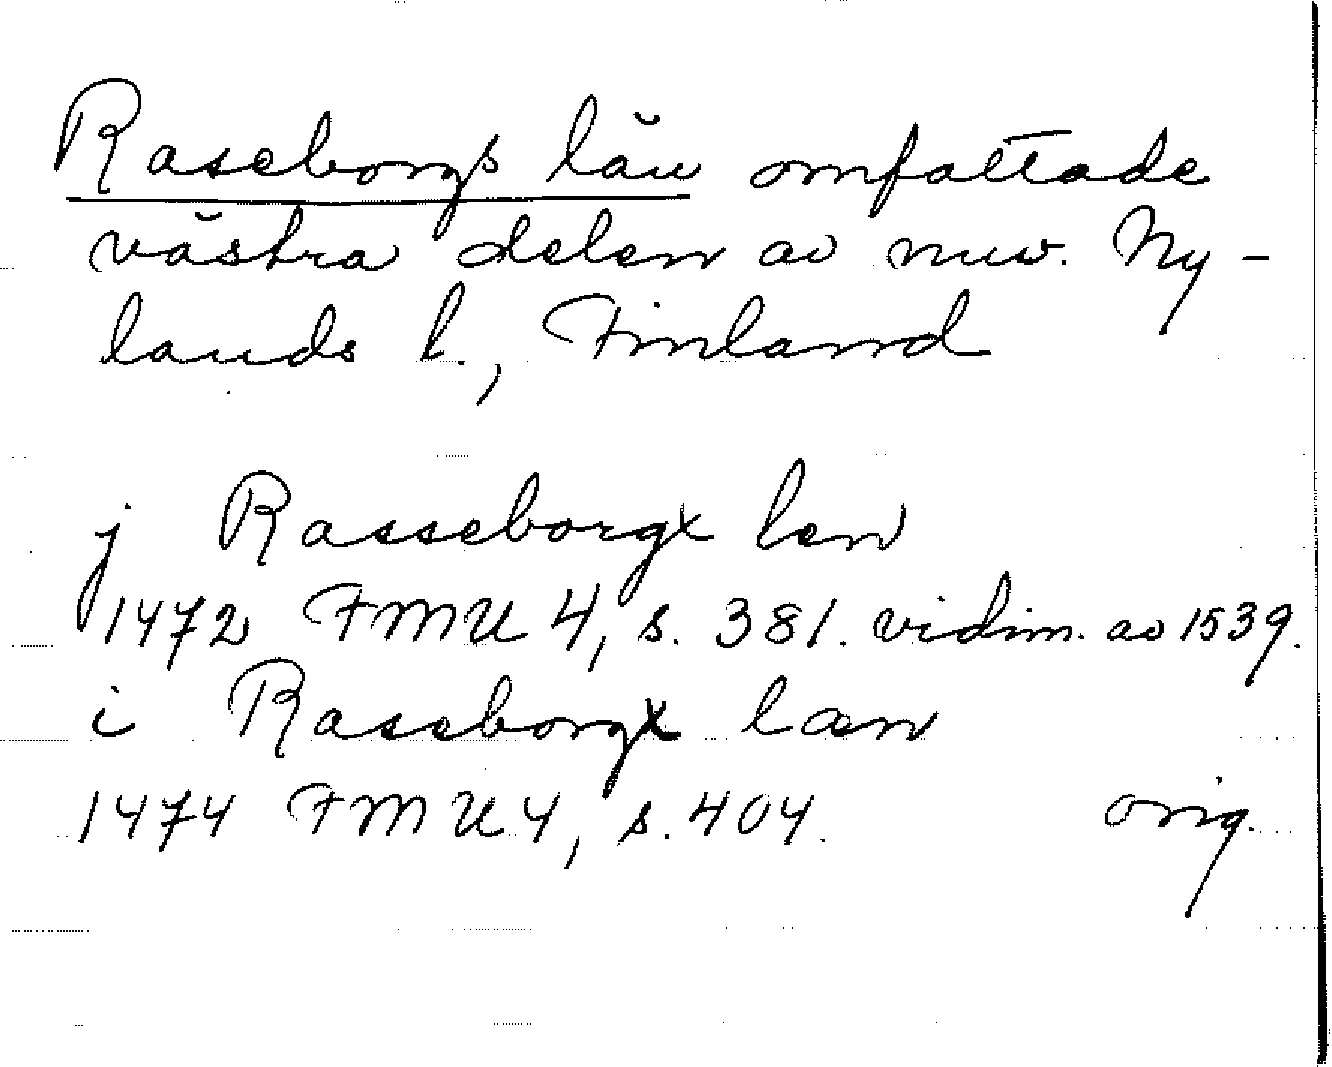 Raseborgs län omfattade
västra delen av nuv. Ny-
lands l., Finland
j Rasseborgx len
1472 FMU 4, s. 381. vidim. av 1539.
i Raseborgx læn
1474 FMU 4, s. 404. orig.